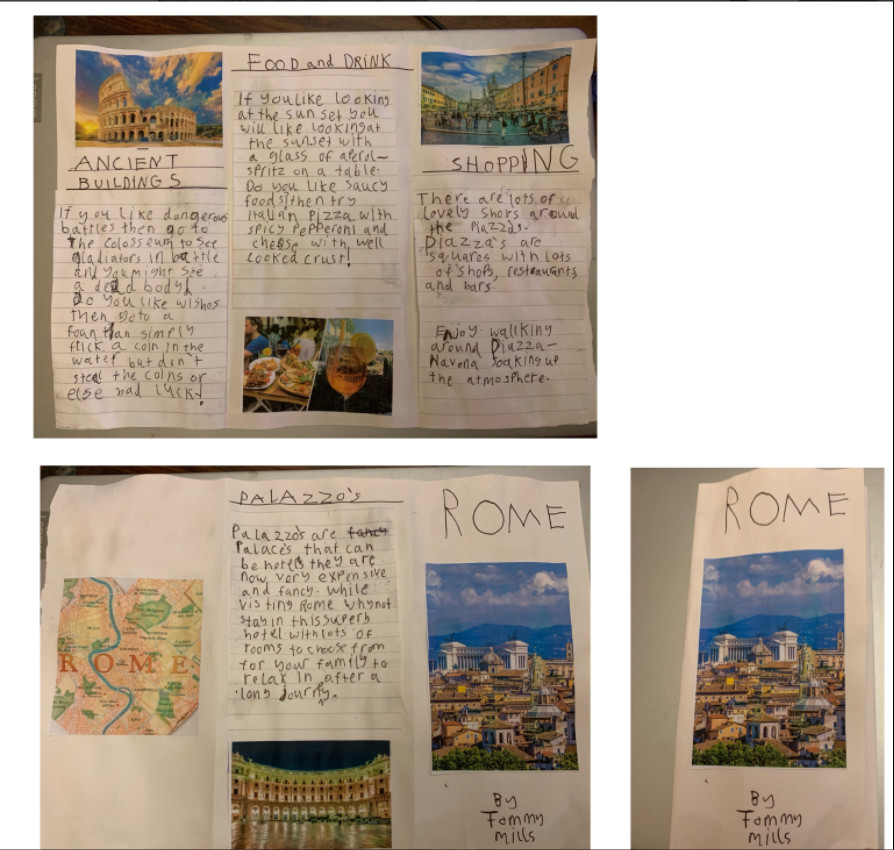 ANCIENT
BUILDINGS
If you like dangerous
battles then go to
the Colosseum to see
gladiators in battle
and you might see
a dead body!
Do you like wishes
then go to a
fountian simply
flick a coin in the
water but don't
steal the coins or
else bad luck!
FOOD and DRINK
If you like looking
at the sun set you
will like looking at
the sunset with
a glass of aperol-
spritz on a table.
Do you like saucy
foods then try
italian pizza with
spicy pepperoni and
cheese with well
cooked crust!
SHOPPING
There are lots of
lovely shops around
the Piazzas.
Piazza's are
squares with lots
of shops, restaurants
and bars.
Enjoy wallking
around Piazza-
Navona soaking up
the atmosphere.
ROME
PALAZZO'S
Palazzo's are fancy
Palace's that can
be hotels they are
now very expensive
and fancy. While
visting Rome why not
stay in this superb
hotel with lots of
rooms to choose from
for your family to
relax in after a
long
ROME
By
Tommy
Mills
ROME
By
Tommy
Mills